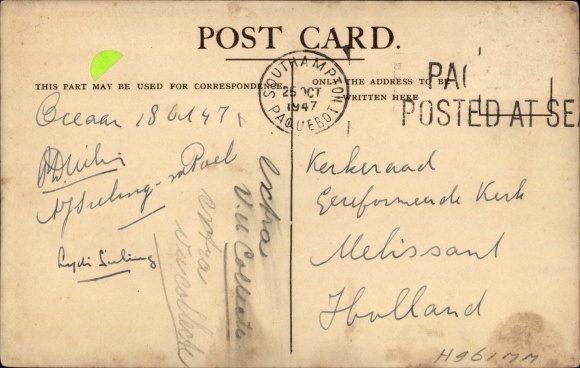 POST CARD.
THIS PART MAY BE USED FOR CORRESPONDENCE
ONLY THE ADDRESS TO BE
WRITTEN HERE
SOUTHAMPTON
25 OCT
1947
PAQUEBOT
PAQ
POSTED AT SEA
Oceaan 18 Oct 47
Lydi Sieling
extra
V.U Collecte
extra
Kerkeraad
Gereformeerde Kerk
Melissant
Holland
H961MM